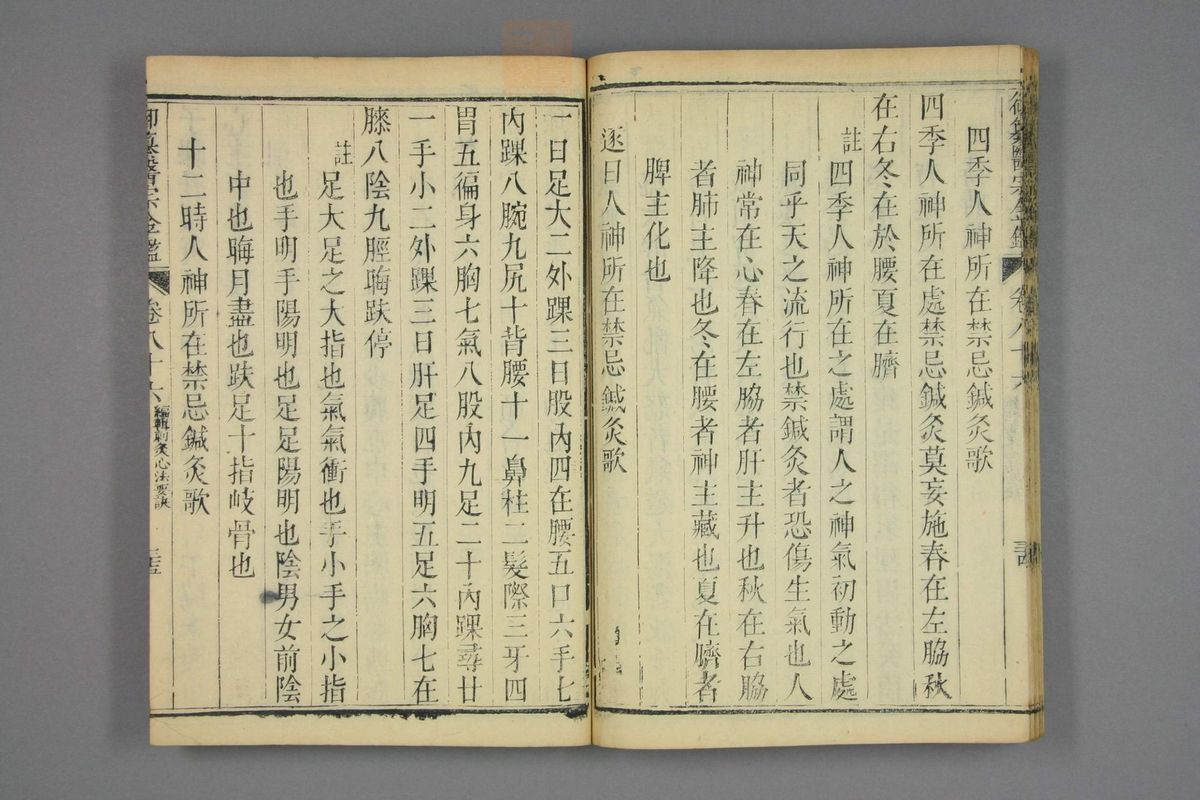 御纂醫宗金鑑
卷八十六
四季人神所在禁忌鍼灸歌
四季人神所在處禁忌鍼灸莫妄施春在左脇秋
在右冬在於腰夏在臍
註
四季人神所在之處謂人之神氣初動之處
同乎天之流行也禁鍼灸者恐傷生氣也人
神常在心春在左脇者肝主升也秋在右脇
者肺主降也冬在腰者神主藏也夏在臍者
脾主化也
逐日人神所在禁忌鍼灸歌
一日足大二外踝三日股內四在腰五口六手七
內踝八腕九尻十背腰十一鼻柱二髮際三牙四
胃五徧身六胸七氣八股內九足二十內踝尋廿
一手小二外踝三日肝足四手明五足六胸七在
膝八陰九脛晦趺停
註
足大足之大指也氣氣衝也手小手之小指
也手明手陽明也足足陽明也陰男女前陰
中也晦月盡也趺足十指岐骨也
十二時人神所在禁忌鍼灸歌
御纂醫宗金鑑
卷八十六
編輯刺灸心法要訣